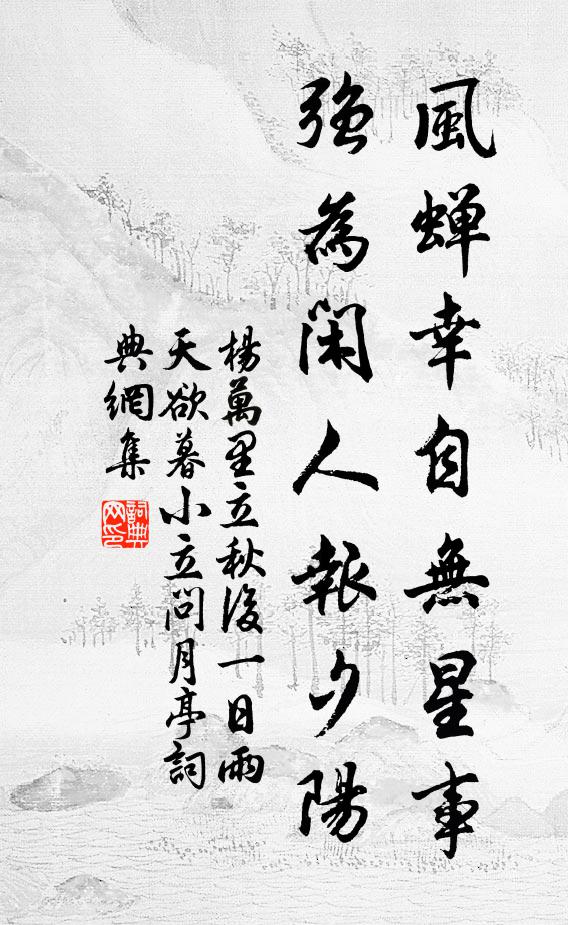 風蟬幸自無星事
強為閑人報夕陽
楊萬里立秋後一日雨
天欲暮小立問月亭詞
典網集
詞典
网印